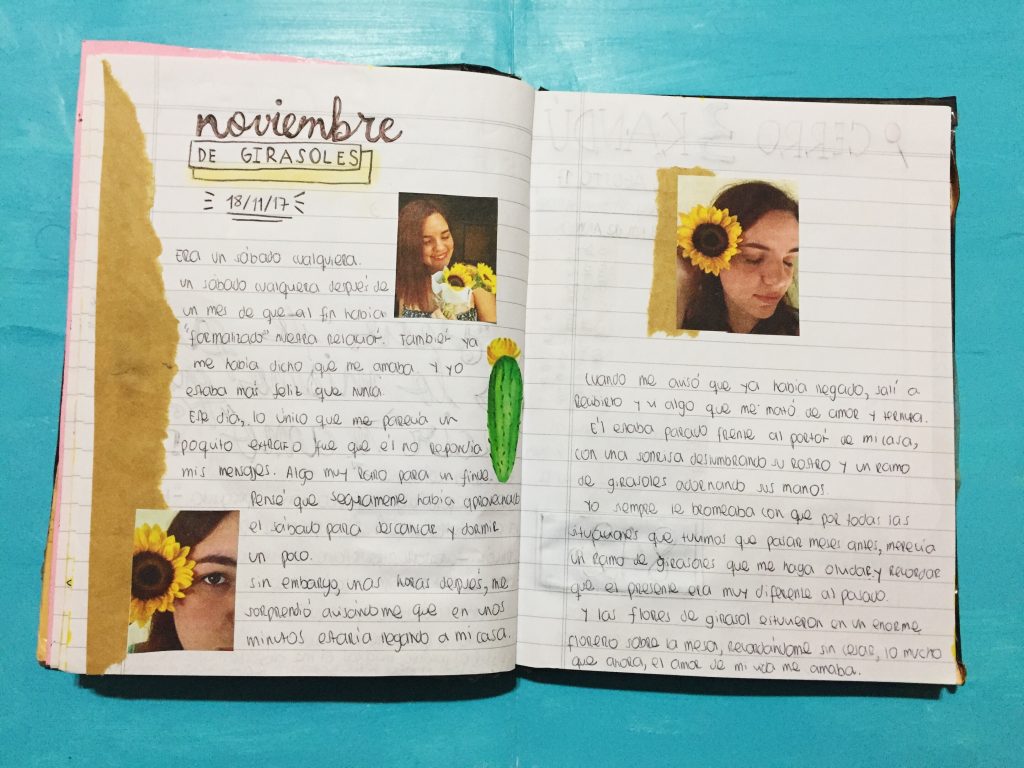 noviembre
DE GIRASOLES
18/11/17
Era un sábado cualquiera.
un sábado cualquiera después de
un mes de que al fin había
"formalizado" nuestra relación. También ya
me había dicho que me amaba. Y yo
estaba más feliz que nunca.
Ese día, lo único que me parecía un
poquito extraño fue que él no respondía
mis mensajes. Algo muy raro para un finde.
Pensé que seguramente había aprovechado
el sábado para descansar y dormir
un poco.
sin embargo, unas horas después, me
sorprendió avisándome que en unos
minutos estaría llegando a mi casa.
CERRO KANDÚ
Cuando me avisó que ya había llegado, salí a
recibirlo y vi algo que me mató de amor y ternura.
Él estaba parado frente al portón de mi casa,
con una sonrisa deslumbrando su rostro y un ramo
de girasoles adornando sus manos.
Yo siempre le bromeaba con que por todas las
situaciones que tuvimos que pasar meses antes, merecía
un ramo de girasoles que me haga olvidar y recordar
que el presente era muy diferente al pasado.
Y las flores de girasol estuvieron en un enorme
florero sobre la mesa, recordándome sin cesar, lo mucho
que ahora, el amor de mi vida me amaba.